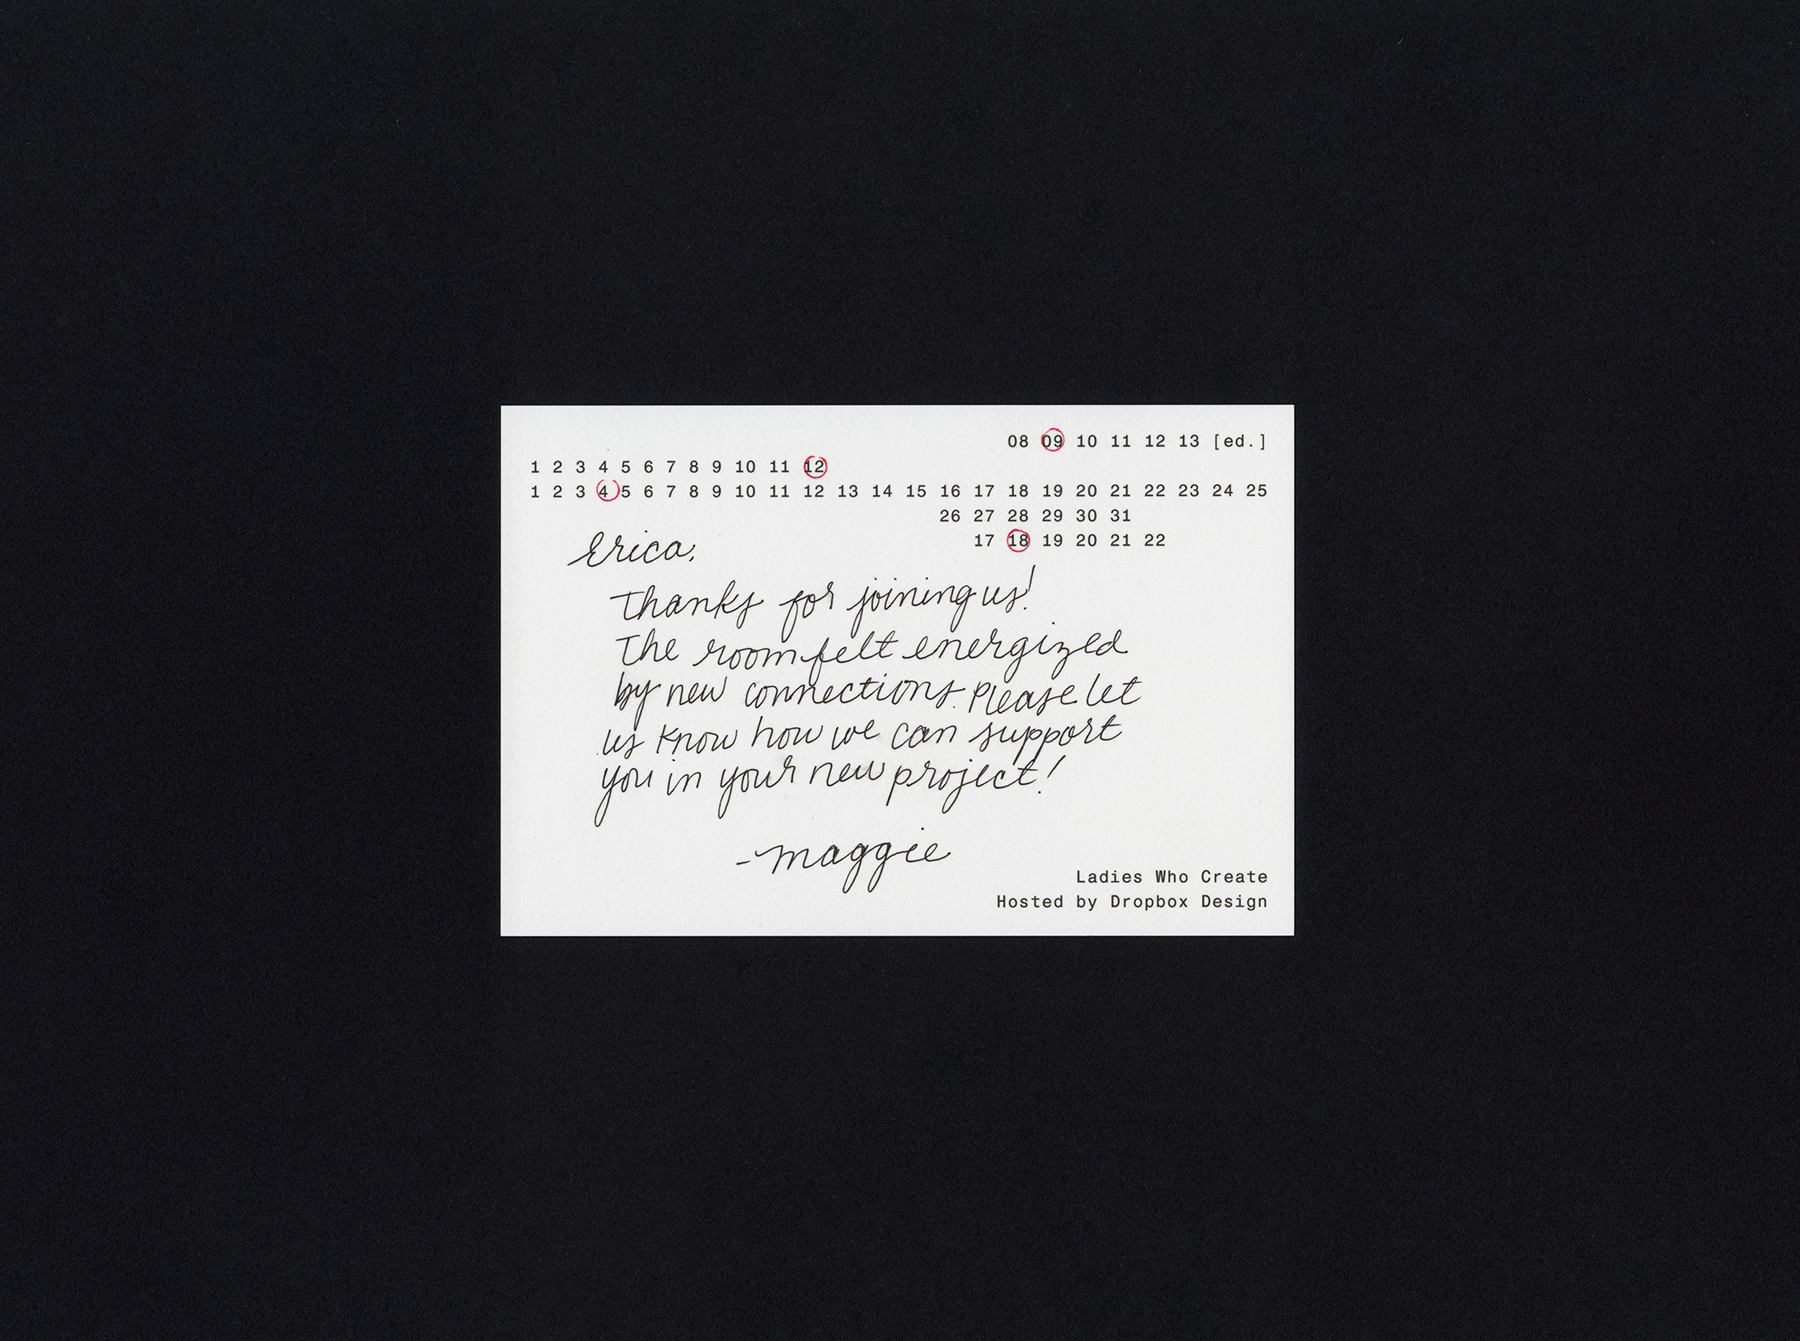 08 09 10 11 12 13 [ed.]
1 2 3 4 5 6 7 8 9 10 11 12
1 2 3 4 5 6 7 8 9 10 11 12 13 14 15 16 17 18 19 20 21 22 23 24 25
26 27 28 29 30 31
17 18 19 20 21 22
Erica,
Thanks for joining us!
The room felt energized
by new connections. Please let
us know how we can support
you in your new project!
-maggie
Ladies Who Create
Hosted by Dropbox Design